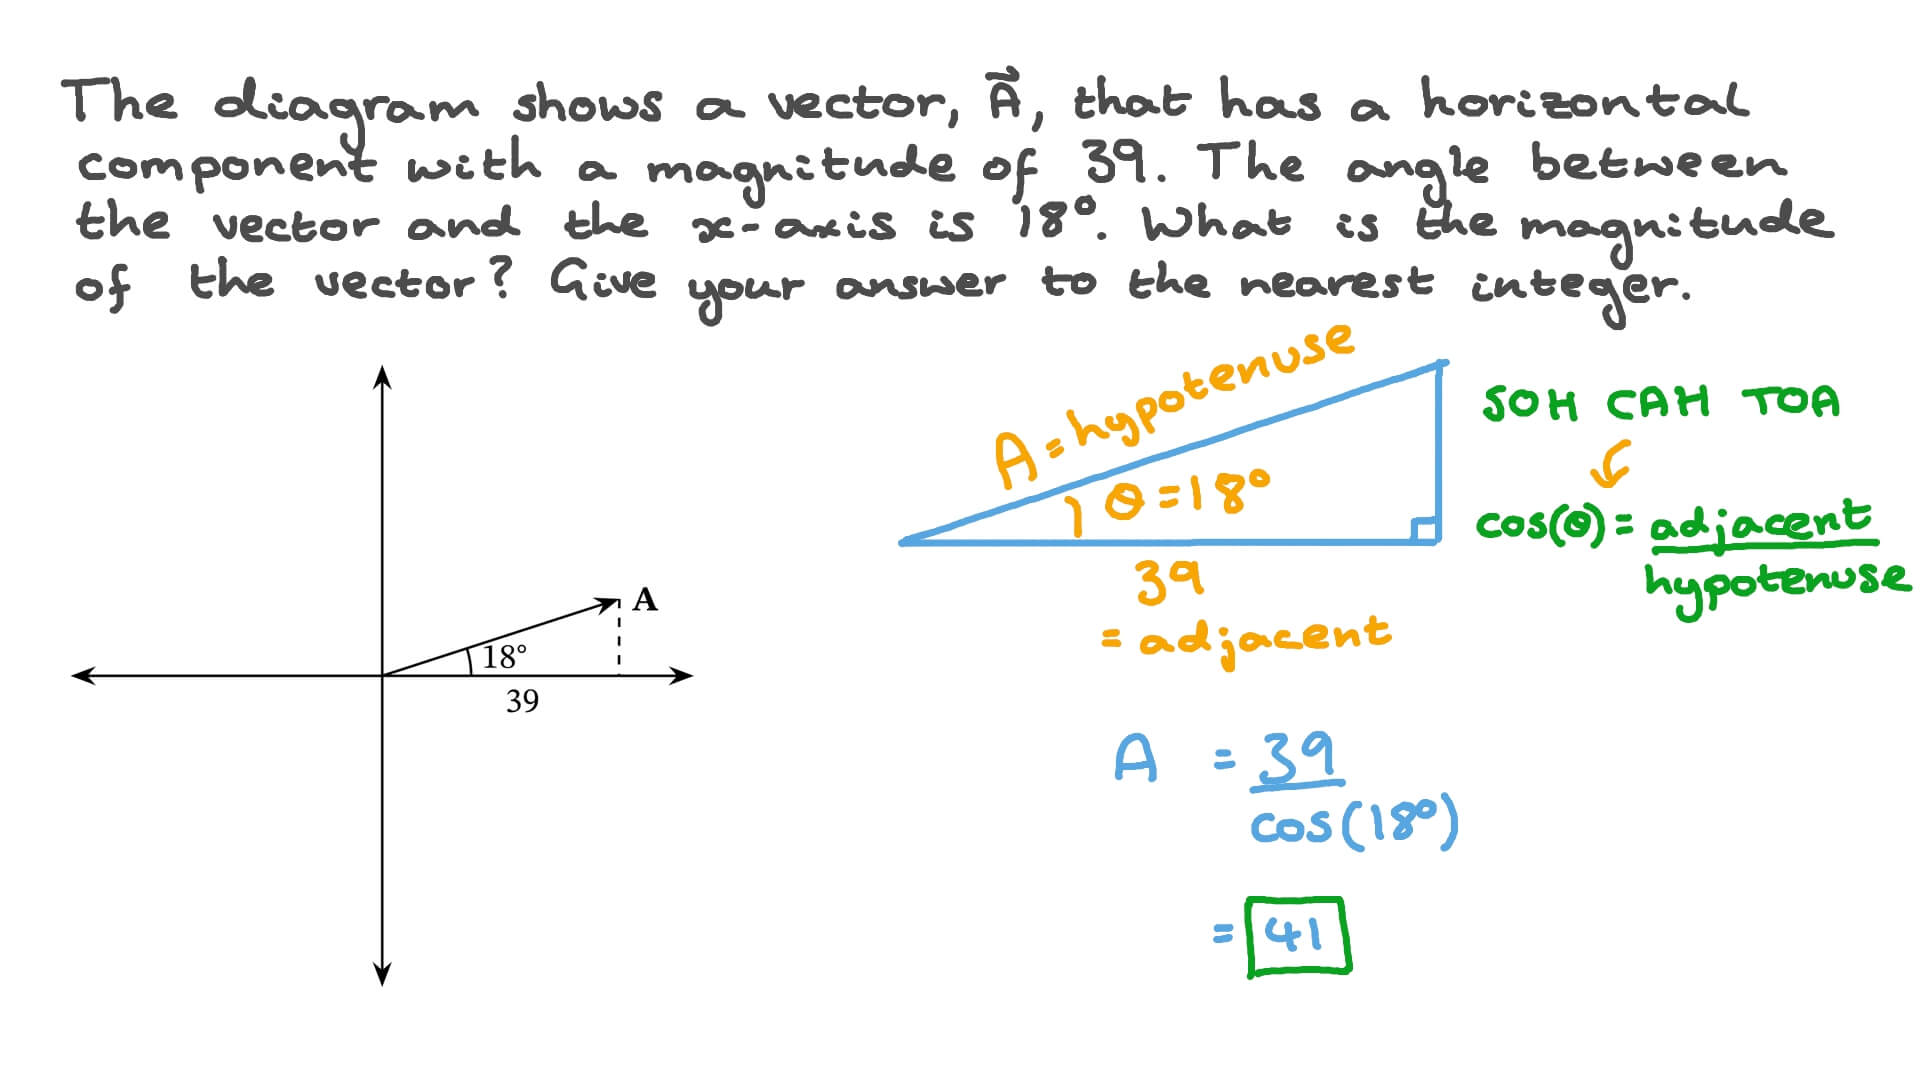 The diagram shows a vector, A⃗, that has a horizontal
component with a magnitude of 39. The angle between
the vector and the x-axis is 18°. What is the magnitude
of the vector? Give your answer to the nearest integer.
A
18°
39
A = hypotenuse
θ = 18°
39
= adjacent
SOH CAH TOA
cos(θ) = adjacent
hypotenuse
A = 39
cos(18°)
= 41